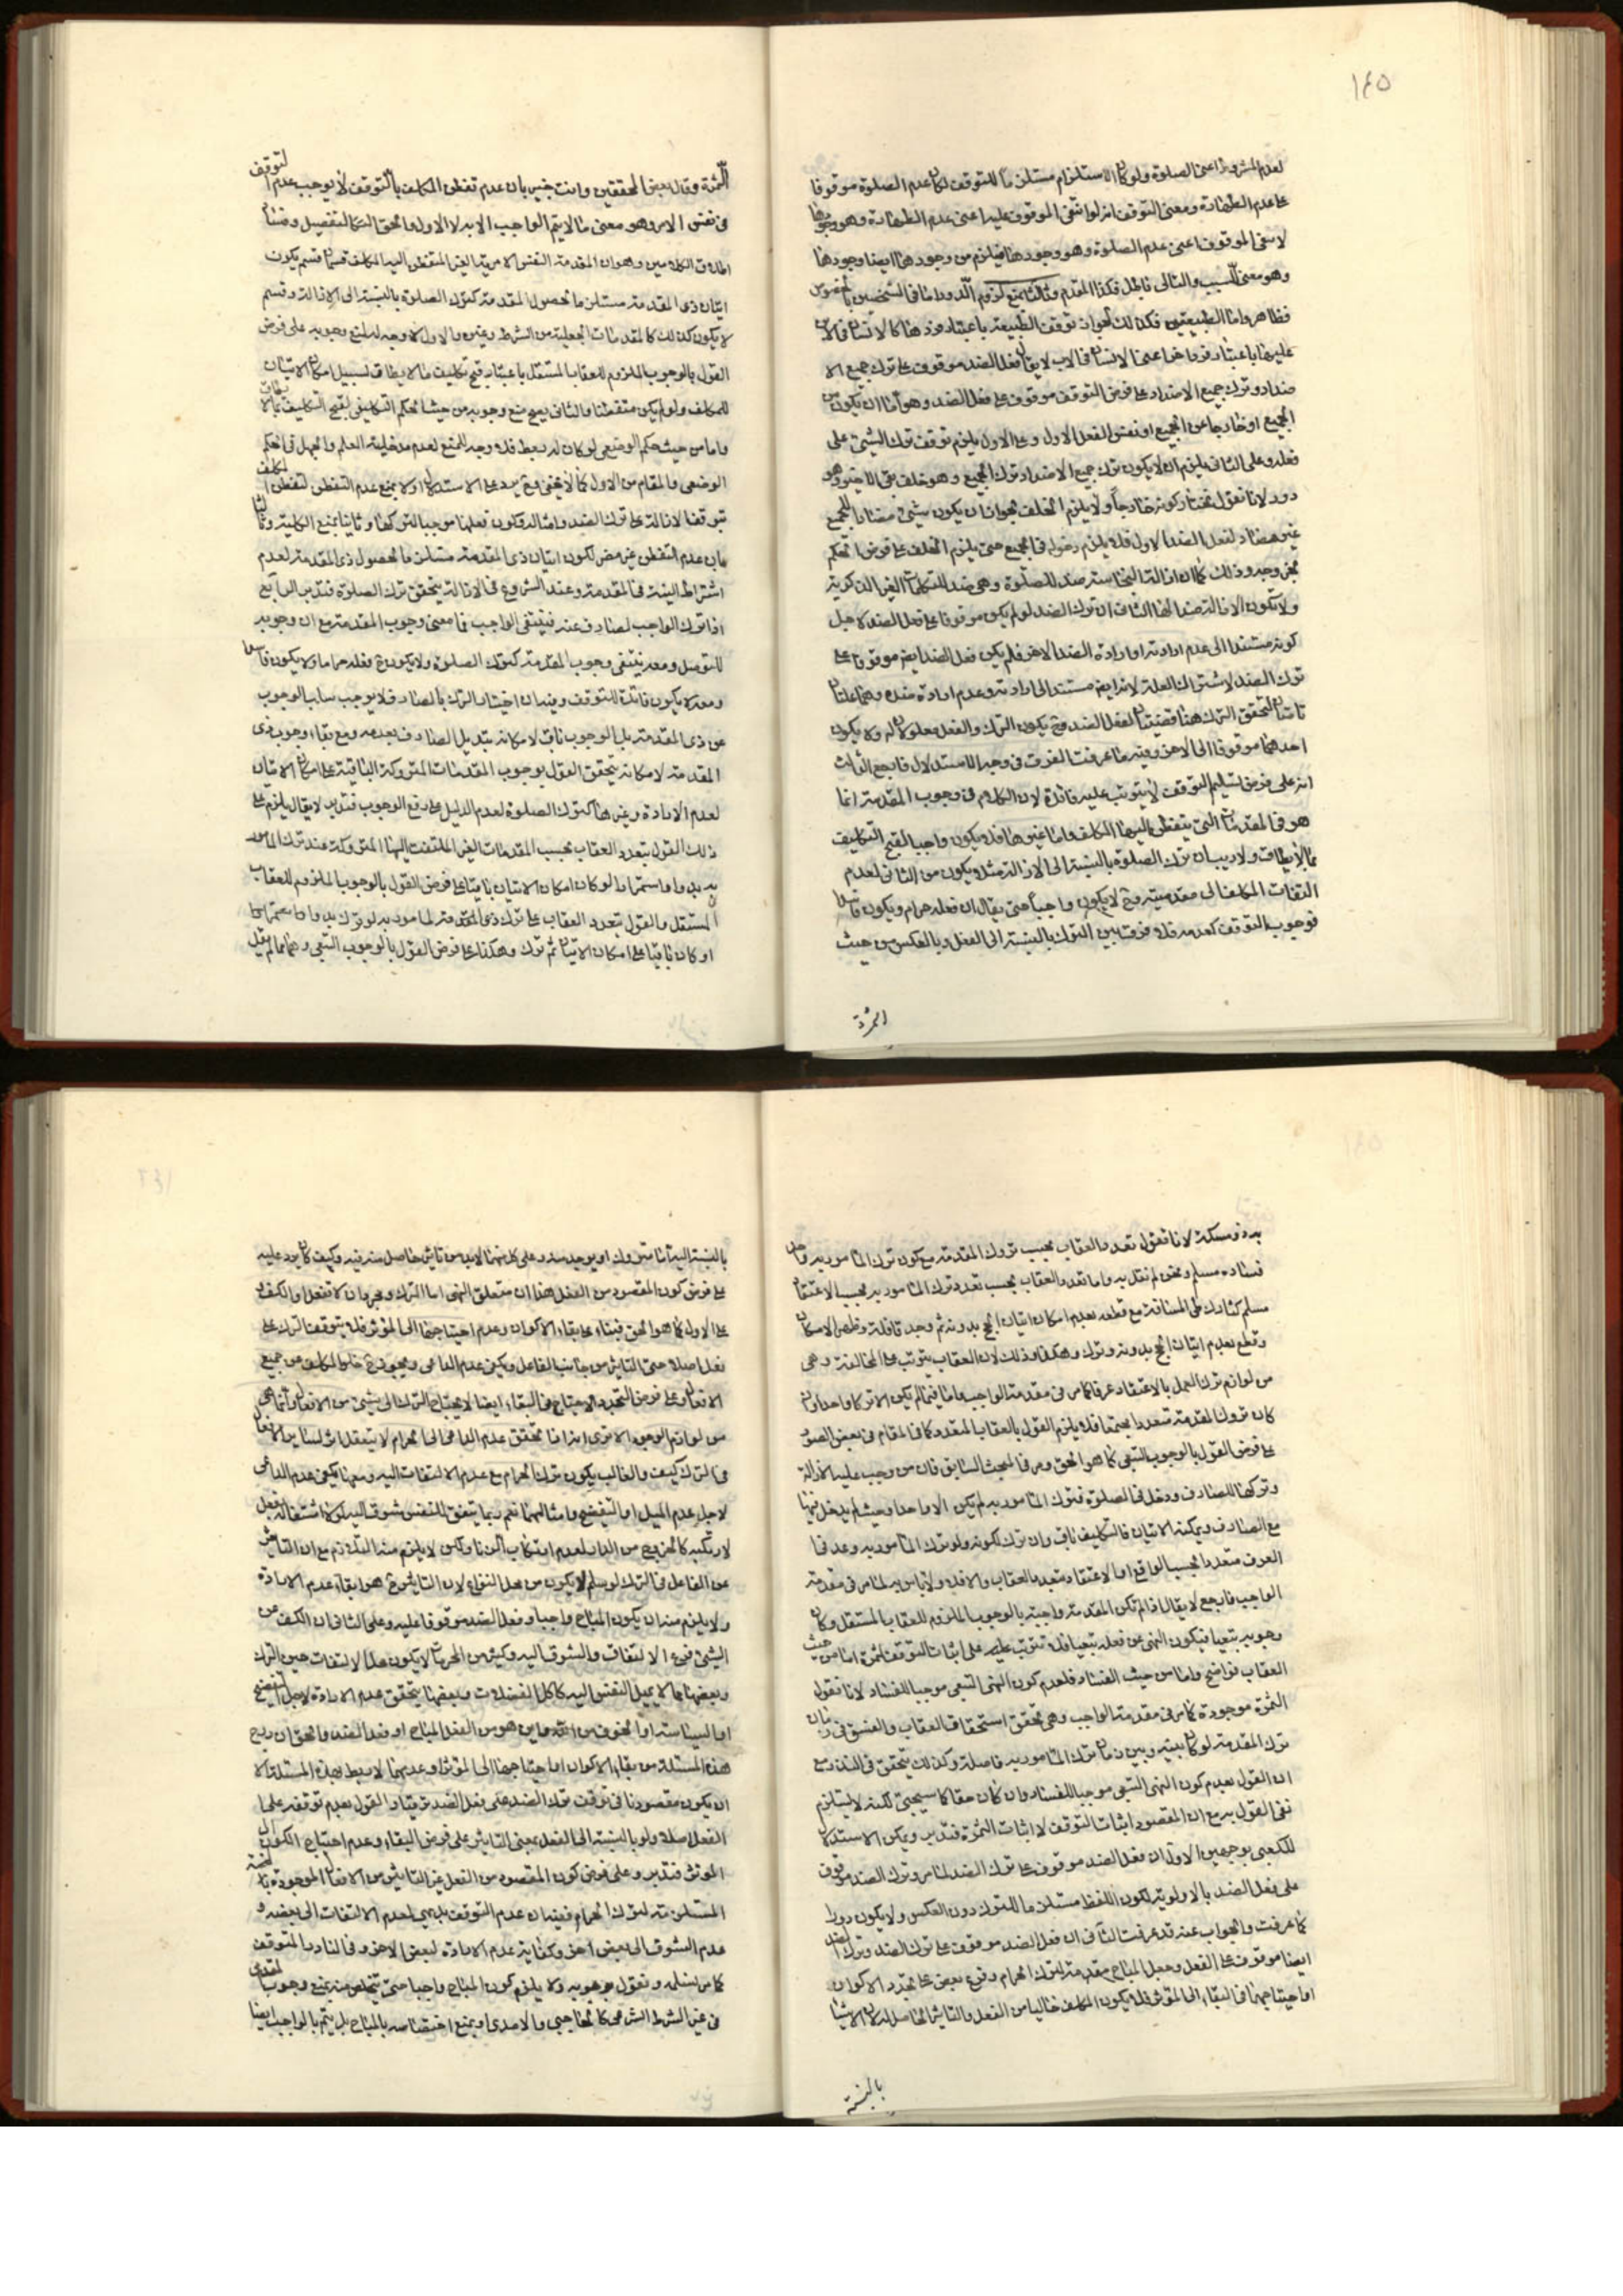 ١٤٥
لعدم المشروط اعنى الصلوة ولو كان الاستلزام مستلزما للتوقف لكان عدم الصلوة موقوفا
على عدم الطهارة ومعنى التوقف انه لو انتفى الموقوف عليه اعنى عدم الطهارة وهو وجودها
لانتفى الموقوف اعنى عدم الصلوة وهو وجودها فيلزم من وجودها ايضا وجودها
وهو معنى السبب والتالى باطل فكذا المقدم وثالثا بمنع لزوم الدور اما فى الشخصين بالخصوص
فظاهر واما الطبيعتين فكذلك لجواز توقف الطبيعة باعتبار فردها كالانسان فالاب
عليها باعتبار فرد اخر اعنى الانسان فى الاب لا يقال فعل الضد موقوف على ترك جميع الا
ضداد وترك جميع الاضداد على فرض التوقف موقوف على فعل الضد وهو اما ان يكون من
الجميع او خارجا عن الجميع او نفس الفعل الاول وعلى الاول يلزم توقف ترك الشيئ على
فعله وعلى الثانى يلزم ان لا يكون ترك جميع الاضداد ترك الجميع وهو خلف بقى الاخير وهو
دور لانا نقول نختار كونه خارجاً ولا يلزم الخلف لجواز ان يكون شيئ مضادا للجميع
غير مضاد لفعل الضد الاول فلا يلزم دخوله فى الجميع حتى يلزم الخلف على فرض الحكم
بخروجه وذلك كما ان ازالة النجاسة ضد للصلوة وهى ضد للتكلمات الغير الذكرية
ولا تكون الازالة ضدا لها الثانى ان ترك الضد لو لم يكن موقوفا على فعل الضد لاجل
كونه مستندا الى عدم ارادته او ارادة الضد الاخر فلم يكن فعل الضد ايضا موقوفا على
ترك الضد لاشتراك العلة لانه ايضا مستند الى ارادته وعدم ارادة ضده وهما علتان
تامتان لتحقق الترك هنا قضيتان لفعل الضد وح يكون الترك والفعل معلولان له ولا يكون
احدهما موقوفا الى الاخر وفيه ما عرفت الفرق فى وجه الاستدلال فارجع الثالث
انه على فرض تسليم التوقف لا يترتب عليه فائدة لان الكلام فى وجوب المقدمة انما
هو فى المقدمات التى يتفطن اليها المكلف واما غيرها فلا يكون واجبا لقبح التكليف
بما لا يطاق ولا ريب ان ترك الصلوة بالنسبة الى الازالة مثلا يكون من الثانى لعدم
التفات المكلف الى مقدميته وح لا يكون واجباً حتى يقال ان فعله حرام ويكون فاسدا
فوجوب التوقف كعدمه فلا فرق بين الترك بالنسبة الى الفعل وبالعكس من حيث
الثمرة
الثمرة وقال بعض المحققين وانت خبير بان عدم تفطن المكلف بالتوقف لا يوجب عدم التوقف
فى نفس الامر وهو معنى ما لا يتم الواجب الا به لا الاول والحق التفصيل وفسا
اطلاق الكلامين وهو ان المقدمة النفس الامرية الغير المتفطن اليه المكلف قسمان قسم يكون
اتيان ذى المقدمة مستلزما لحصول المقدمة كترك الصلوة بالنسبة الى الازالة وقسم
لا يكون كذلك كالمقدمات الجعلية من الشرط وغيره والاول لا وجه لمنع وجوبه على فرض
القول بالوجوب الملزوم للعقاب المستقل باعتبار قبح تكليف ما لا يطاق لسبيل امكان الاتيان
للمكلف ولو لم يكن متفطنا والثانى يصح منع وجوبه من حيث الحكم التكليفى لقبح التكليف بما لا يطاق
واما من حيث الحكم الوضعى لو كان له ربط فلا وجه للمنع لعدم مدخلية العلم والجهل فى الحكم
الوضعى والمقام من الاول كما لا يخفى وح يرد على الاستدلال اولا بمنع عدم التفطن لتفطن المكلف
بتوقف الازالة على ترك الضد وامثاله فكون فعلها موجبا لتركها وثانيا بمنع الكلية وثالثا
بان عدم التفطن غير مضر لكون اتيان ذى المقدمة مستلزما لحصول ذى المقدمة لعدم
اشتراط النية فى المقدمة وعند الشروع فى الازالة يتحقق ترك الصلوة فتدبر الرابع
اذا ترك الواجب لصارف عنه فينتفى الواجب فما معنى وجوب المقدمة مع ان وجوبه
للتوصل ومعه ينتفى وجوب المقدمة كترك الصلوة ولا يكون ح فعله حراما ولا يكون فاسدا
ومعه لا يكون فائدة للتوقف وفيه ان اختيار الترك بالصارف لا يوجب سلب الوجوب
عن ذى المقدمة بل الوجوب باق لامكانه بتبديل الصارف بعدمه ومع بقاء وجوب ذى
المقدمة لامكانه يتحقق القول بوجوب المقدمات المتروكة الباقية على امكان الاتيان
لعدم الارادة وغيرها كترك الصلوة لعدم الدليل على رفع الوجوب فتدبر لا يقال يلزم على
ذلك القول بتعدد العقاب بحسب المقدمات الغير الملتفت اليها المتروكة عند ترك المامور
به بدوا واستمرارا لو كان امكان الاتيان باقيا على فرض القول بالوجوب الملزوم للعقاب
المستقل والقول بتعدد العقاب على ترك ذى المقدمة لمامور به لو ترك بدوا واستمرارا
او كان باقيا على امكان الاتيان ثم ترك وهكذا على فرض القول بالوجوب التبعى وهما مما لم يقل
به ذو مسكة لانا نقول تعدد العقاب بحسب تروك المقدمة مع كون ترك المامور به واحدا
فساده مسلم ونحن لم نقل به واما تعدد العقاب بحسب تعدد ترك المامور به بحسب الاعتقاد
مسلم كتارك طى المسافة مع قطعه بعدم امكان اتيان الحج بدونه ثم وجد قافلة وظهر الامكان
وقطع بعدم اتيان الحج بدونه وترك وهكذا وذلك لان العقاب يترتب على المخالفة وهى
من لوازم ترك العمل بالاعتقاد عرفا كما مر فى مقدمة الواجب واما فيما لم يكن الا تركا واحدا وان
كان تروك المقدمة متعددا مجتمعا فلا يلزم القول بالعقاب المتعدد كما فى المقام فى بعض الصور
على فرض القول بالوجوب التبعى كما هو الحق ومر فى المبحث السابق فان من وجب عليه الازالة
وتركها للصارف ودخل فى الصلوة فترك المامور به لم يكن الا واحدا وحيث لم يدخل فيها
مع الصارف ويمكنه الاتيان فالتكليف باق وان ترك لكونه ولو ترك المامور به وعد فى
العرف متعددا بحسب الواقع او الاعتقاد متعدد العقاب والا فلا ولا باس به لما مر فى مقدمة
الواجب فارجع لا يقال اذا لم تكن المقدمة واجبة بالوجوب الملزوم للعقاب المستقل وكان
وجوبه تبعيا فيكون النهى عن فعله تبعيا فلا تترتب عليه على اثبات التوقف ثمرة اما من حيث
العقاب فواضح واما من حيث الفساد فلعدم كون النهى التبعى موجبا للفساد لانا نقول
الثمرة موجودة كما مر فى مقدمة الواجب وهى تحقق استحقاق العقاب والفسق فى زمان
ترك المقدمة لو كان بينه وبين زمان ترك المامور به فاصلة وكذلك يتحقق فى النذر مع
ان القول بعدم كون النهى التبعى موجبا للفساد وان كان حقا كما سيجيئ لكنه لا يستلزم
نفى القول به مع ان المقصود اثبات التوقف لا اثبات الثمرة فتدبر ويمكن الاستدلال
للكعبى بوجهين الاول ان فعل الضد موقوف على ترك الضد لما مر وترك الضد موقوف
على فعل الضد بالاولوية لكون اللفظ مستلزما للترك دون العكس ولا يكون دورا
كما عرفت والجواب عنه قد عرفت الثانى ان فعل الضد موقوف على ترك الضد وترك الضد
ايضا موقوف على الفعل وجعل المباح مقدمة لترك الحرام وفرع بعض على تجدد الاكوان
او احتياجها فى البقاء الى المؤثر فلا يكون المكلف خاليا من الفعل والتاثير الحاصل له لان الاشياء
بالنسبة
بالنسبة اليه اما متروك او يوجد منه وعلى كل منهما لا بد من تاثير حاصل منه فيه وكيف كان يرد عليه
على فرض كون المقصود من الفعل هذا ان متعلق النهى اما الترك ومجرد ان لا تفعل او الكف
على الاول كما هو الحق فبناء على بقاء الاكوان وعدم احتياجها الى المؤثر فلا يتوقف الترك على
فعل اصلا حتى التاثير من جانب الفاعل ويكفى عدم الداعى ويجوز ح خلو المكلف عن جميع
الافعال وعلى فرض التجدد والاحتياج فى البقاء ايضا لا يحتاج الترك الى شيئ من الافعال وانما هى
من لوازم الوجود الا ترى انه اذا تحقق عدم الداعى الى الحرام لا يتعقل اثر لساير الافعال
فى الترك كيف والغالب يكون ترك الحرام مع عدم الالتفات اليه ومعها يكفى عدم الداعى
لاجل عدم الميل او التبغيض وامثالهما نعم ربما يتفق للنفس شوق اليه لولا اشتغاله بفعل
لارتكبه كالخروج من الدار لعدم ارتكاب الزنا ولكن لا يلزم منه التلازم مع ان التاثير
عن الفاعل فى الترك لو سلم لا يكون من محل النزاع لان التاثير ح هو ابقاء عدم الارادة
ولا يلزم منه ان يكون المباح واجبا وفعل الضد موقوفا عليه وعلى الثانى ان الكف عن
الشيئ فرع الالتفات والشوق اليه وكثير من المحرمات لا يكون محلا للالتفات حين الترك
وبعضها مما لا يميل النفس اليه كاكل الفضلات وبعضها يتحقق عدم الارادة لاجل التبغيض
او السياسة او الخوف من الله فاين هو من الفعل المباح او فعل الضد والحق ان ربع
هذه المسئلة من بقاء الاكوان او احتياجها الى المؤثر او عدمهما لا ربط بهذه المسئلة الا
ان يكون مقصودنا فى توقف ترك الضد على فعل الضد ترتبا والقول بعدم توقفه على
الفعل اصلا ولو بالنسبة الى الفعل بمعنى التاثير على فرض البقاء وعدم احتياج الكون الى
المؤثر فتدبر وعلى فرض كون المقصود من الفعل غير التاثير من الافعال الموجودة
المستلزمة لترك الحرام ففيه ان عدم التوقف بديهى لعدم الالتفات الى بعضه و
عدم الشوق الى بعض اخر وكفاية عدم الارادة لبعض الاخر وفى النادر المتوقف
كما مر نسلمه ونقول بوجوبه ولا يلزم كون المباح واجبا حتى يتخلص منه بمنع وجوب المقدمة
فى غير الشرط الشرعى كالحاجبى والامدى او بمنع اختصاصه بالمباح بل يتم بالواجب ايضا